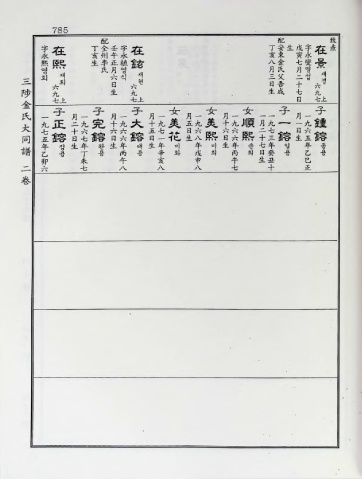 785
致彦
在景 재경 上六九七
字永燮영섭
戊寅七月二十七日
生
配安東金氏父善成
丁亥八月三日生
在鉉
上六九七
壬午正月六日生
配全州李氏
丁亥生
在熙 재희 上六九七
字永熙영희
子鍾鎔 종용
一九六五年乙巳正
月一日生
子一鎔 일용
一九七三年癸丑十
一月二十七日生
女順熙 순희
一九六六年丙午七
月十六日生
女美熙 미희
一九六八年戊申八
月五日生
女美花 미화
一九七一年辛亥八
月十五日生
子大鎔 대용
一九六六年丙午八
月十六日生
子完鎔 완용
一九六七年丁未七
月二十日生
子正鎔 정용
一九七五年乙卯六
三陟金氏大同譜 二卷